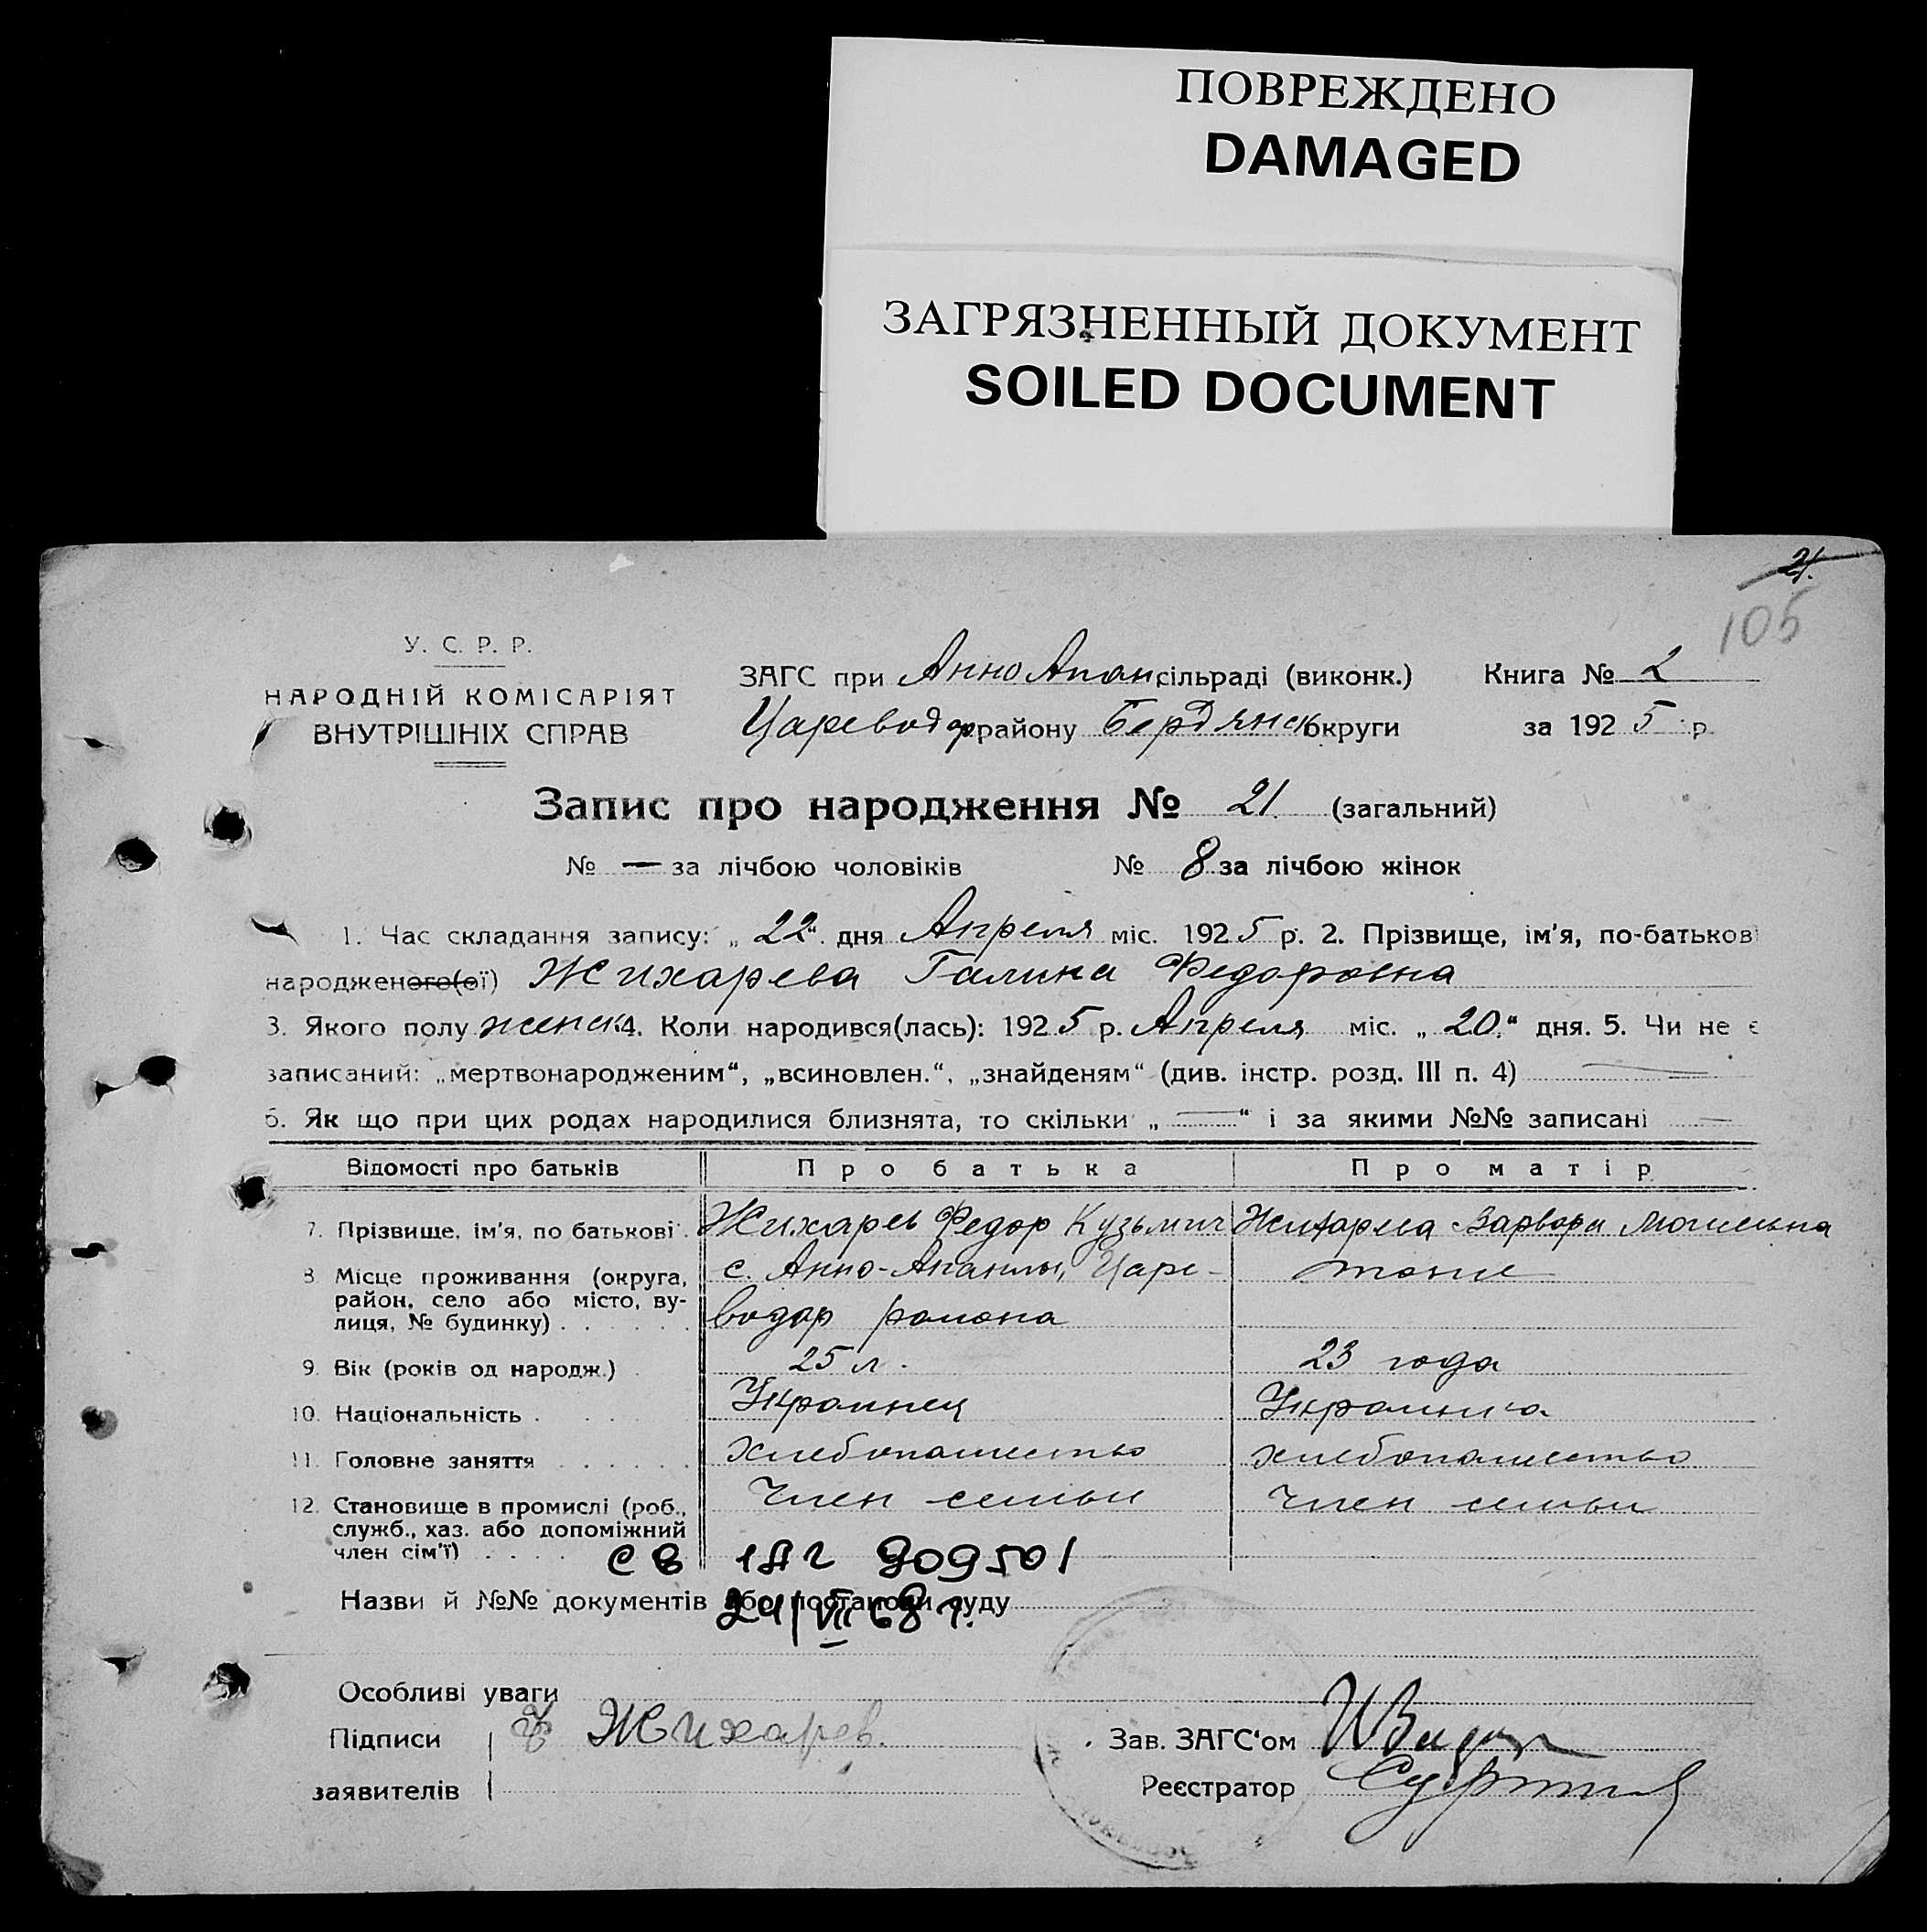 ПОВРЕЖДЕНО
DAMAGED
ЗАГРЯЗНЕННЫЙ ДОКУМЕНТ
SOILED DOCUMENT
21.
105
У. С. Р. Р.
НАРОДНІЙ КОМІСАРІЯТ
ВНУТРІШНІХ СПРАВ
ЗАГС при Анно Апан. сільраді (виконк.) Книга № 2
Цареводар району Бердянск округи за 1925 р.
Запис про народження № 21. (загальний)
№ — за лічбою чоловіків № 8 за лічбою жінок
1. Час складання запису: „22“ дня Апреля міс. 1925 р. 2. Прізвище, ім'я, по-батькові
народженого(ої) Жихарева Галина Федоровна
3. Якого полу женск 4. Коли народився(лась): 1925 р. Апреля міс. „20.“ дня. 5. Чи не є
записаний: „мертвонародженим“, „всиновлен.“, „знайденям“ (див. інстр. розд. III п. 4) —
6. Як що при цих родах народилися близнята, то скільки „—“ і за якими №№ записані —
Відомості про батьків Про батька Про матір
7. Прізвище, ім'я, по батькові. Жихарев Федор Кузьмич Жихарева Варвара
8. Місце проживання (округа, район, село або місто, вулиця, № будинку) с. Анно-Апанлы, Царе-
водар района тоже
9. Вік (років од народж.) 25 л. 23 года
10. Національність Украинец Украинка
11. Головне заняття хлебопашество хлебопашество
12. Становище в промислі (роб., служб., хаз. або допоміжний член сім'ї) Член семьи Член семьи
св 1АГ 909501
Назви й №№ документів або постанови суду
24/VII 68 г.
Особливі уваги
Підписи Ф Жихарев. Зав. ЗАГС'ом
заявителів Реєстратор